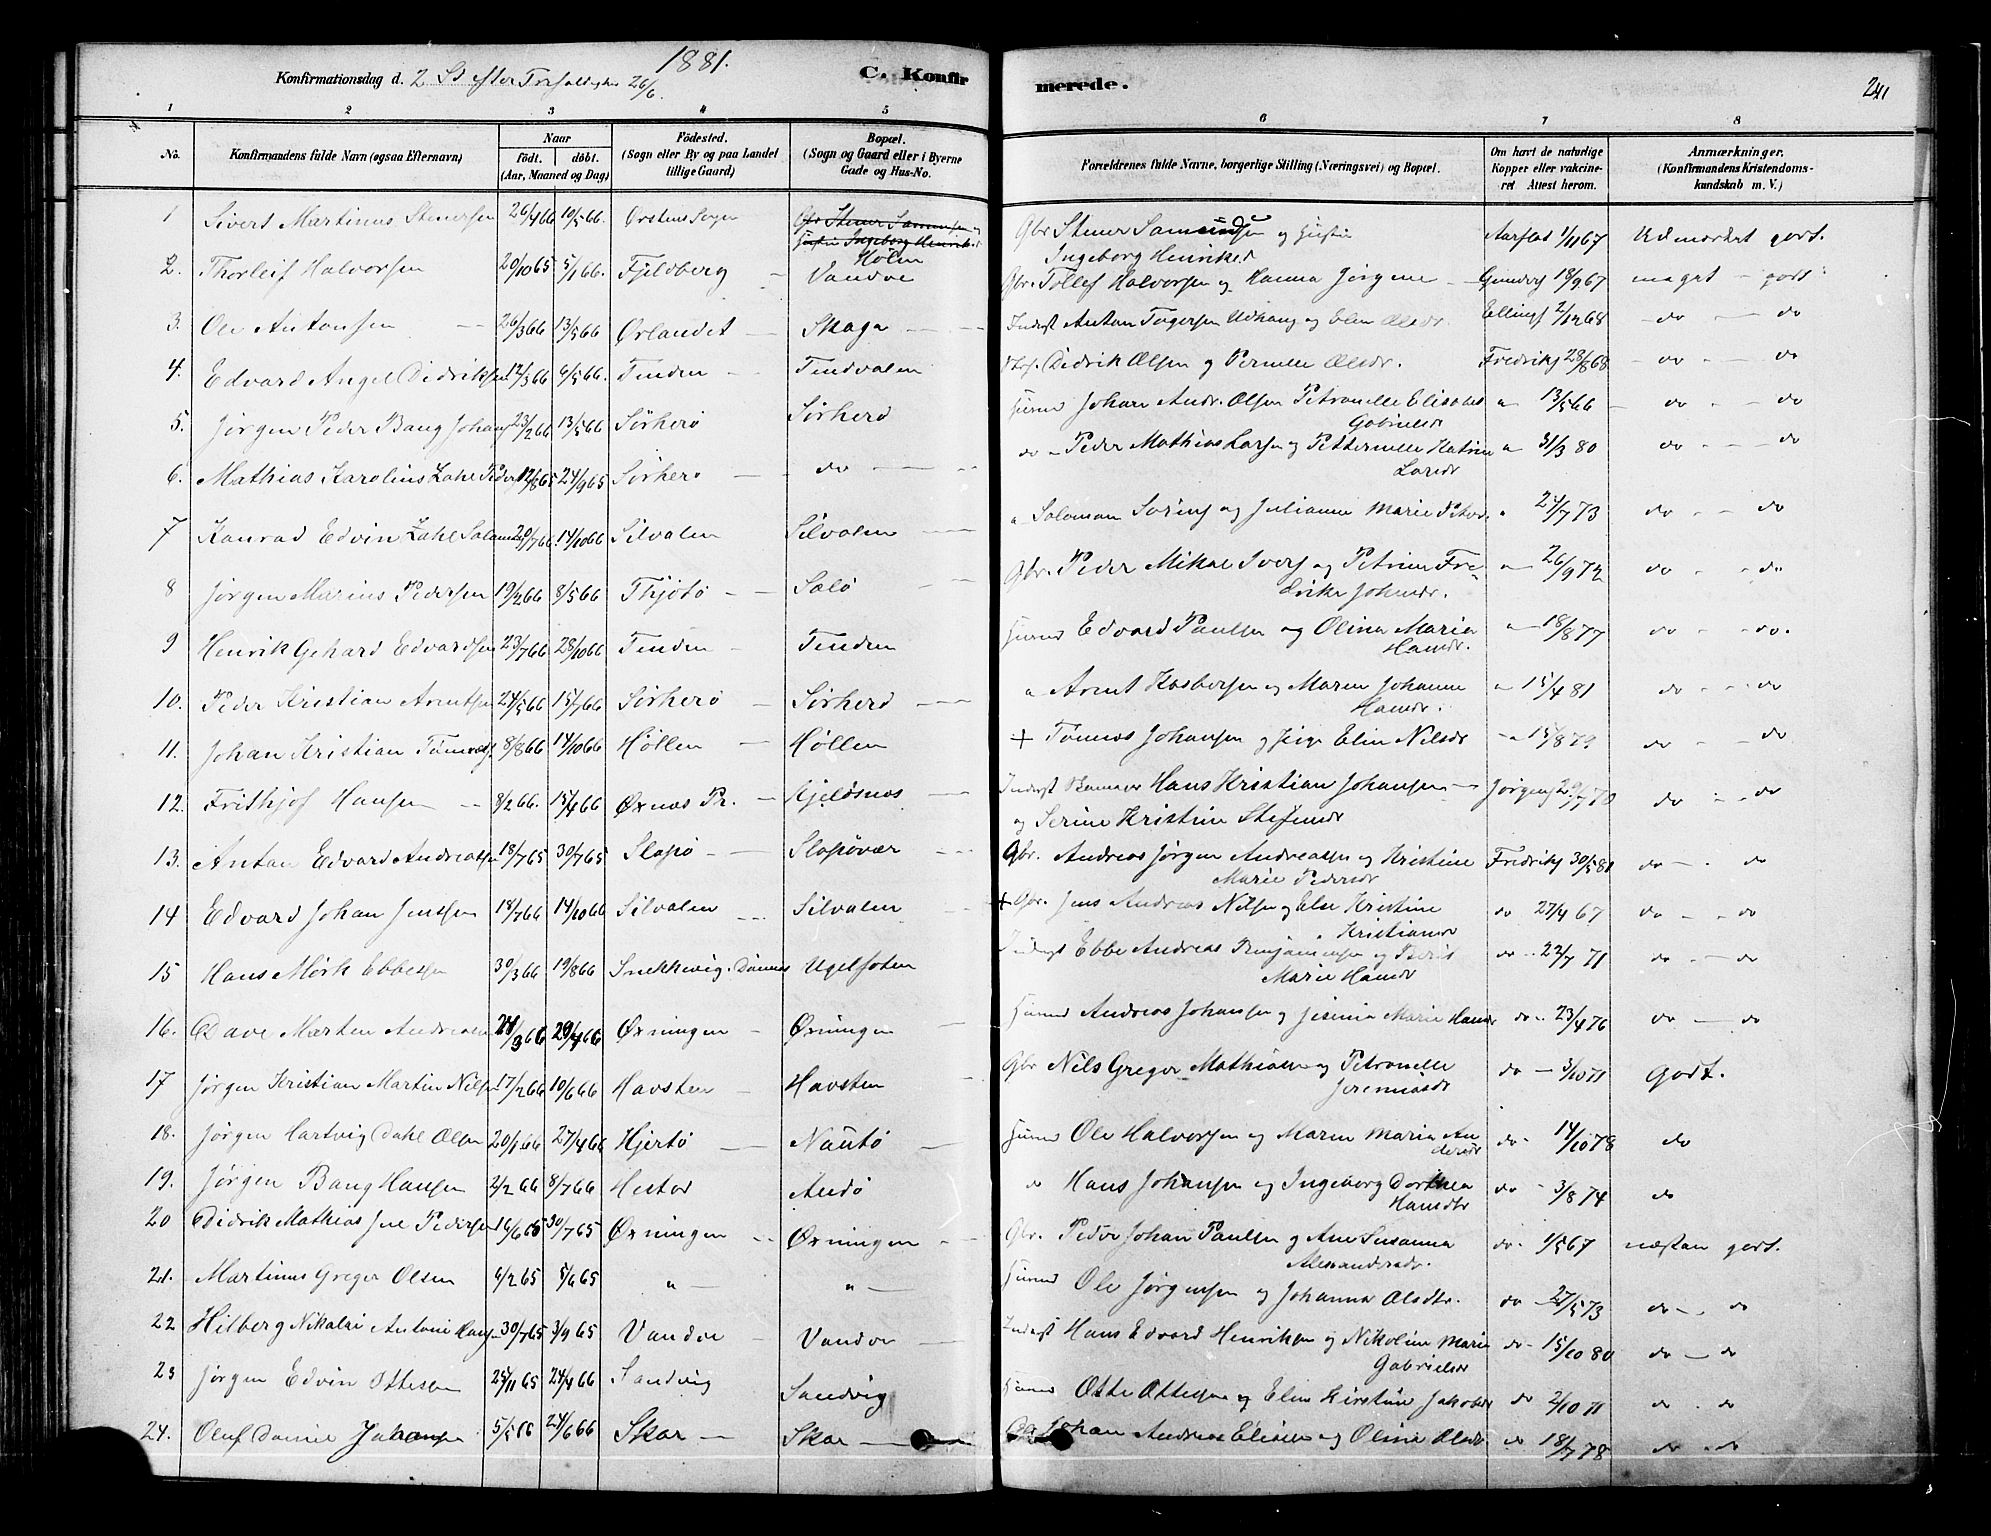 1881.
Konfirmationsdag d. 2 Sd efter Trefoldighed 26/6.
C. Konfirmerede.
241
1 2 3 4 5 6 7 8
No. Konfirmandens fulde Navn (ogsaa Efternavn) Naar født. døbt. (Aar, Maaned og Dag) Fødested. (Sogn eller By og paa Landet tillige Gaard) Bopæl. (Sogn og Gaard eller i Byerne Gade og Hus-No. Forældrenes fulde Navne, borgerlige Stilling (Næringsvei) og Bopæl. Om havt de naturlige Kopper eller vakcineret Attest herom. Anmærkninger, (Konfirmandens Kristendomskundskab m. V.)
1 Sivert Martinus Stenersen 26/4 66 10/5 66. Ørstens Sogn Holen Gbr Stener Samundsen og Hustru Ingeborg Henriksd Aarflot 1/11 67 Udmærket godt.
2. Thorleif Halvorsen 20/10 65 5/1 66. Fjeldberg Vandve Gbr. Tollef Halvorsen og Hanna Jørgine 18/9 67 meget godt
3. Ole Antonsen 26/3 66 13/5 66 Ørlandet Skaga Inderst Anton Udhaug og Elen Olsdr. Ellings 2/12 68 do do
4. Edvard Angel Didriksen 12/3 66 6/5 66. Tenden Tendvalen Didrik Olsen og Pernelle Olsdr. Fredriks 28/8 68 do do
5. Jørgen Peder Bang Johans 23/2 66 13/5 66 Sørherø Sørherø Johan Andr. Olsen Petronelle Elisabet Gabrielsdr " 13/5 66 do do
6. Mathias Karolius Zahl Peders 12/8 65 24/9 65 Sørherø do do Peder Mathias Larsen og Petternelle Katrine Larsdr " 31/3 80 do do
7 Konrad Edvin Zahl Salomons 20/7 66. 14/10 66 Silvalen Silvalen " Salomon Sørens og Julianna Marie Peders. " 24/7 73 do do
8 Jørgen Marius Pedersen 19/2 66 8/5 66 Thjøtø Salø Gbr. Peder Mikal Ivers og Petrine Fredrike Johnsdr. " 26/9 72 do do
9 Henrik Gehard Edvardsen 23/7 66 28/10 66 Tenden Tenden Edvard Paulsen og Olina Maria Hansdr. " 18/8 77 do do.
10. Peder Kristian Arentsen 24/5 66 15/7 66 Sørherø Sørherø " Arent Kasbersen og Maren Johanna Hansdr. " 15/4 81 do do
11. Johan Kristian Tømæs 8/8 66 14/10 66 Høllen Høllen + Tømæs Johansen og Elen Nilsdr " 15/8 79 do do
12. Frithjof Hansen 8/2 66. 15/4 66 Øxnæs Pr. Kjeldsnæs Inderst Hans Kristian Johansen og Serine Kristine Stefensdr Jørgens 29/7 70 do do
13. Anton Edvard Andreassen 18/7 65 30/7 65 Slapø Slapøvær Gbr. Andreas Jørgen Andreassen og Kristine Marie Pedersdr Fredriks 30/5 81 do do
14 Edvard Johan Jenssen 18/7 66 14/10 66 Silvalen Silvalen + Gbr. Jens Andreas Nilsen og Else Kristine Kristiansdr do 27/4 67 do do
15 Hans Mørk Ebbesen 30/3 66 19/8 66 Snekkevig. Dønnes Ugelfoten Inderst Ebbe Andreas Benjaminsen og Marie Hansdr do 22/7 71 do do
16. Dave Marten Andreasen 24/3 66 29/4 66 Øxningen Øxningen Andreas Johansen og Jesine Marie Hansdr do 23/4 76 do do
17 Jørgen Kristian Martin Nilsen 17/2 66 10/6 66 Havsten Havsten Gbr Nils Greger Mathiasen og Petronelle Jeremiasdr do 3/10 71 Godt.
18. Jørgen Hartvig Dahl Olsen 20/1 66 27/4 66 Hjertø Nautø Ole Halvorsen og Maren Maria Andersdr do 14/10 78 do
19. Jørgen Bang Hansen 2/2 66 8/7 66 Hestad Andø do Hans Johansen og Ingeborg Dorthea Hansdtr do 3/8 74 do
20 Didrik Mathias Pedersen 16/6 65 30/7 65 Øxningen Øxningen Gbr. Peder Johan Paulsen og Ane Susanna Alexandersdr. do 1/5 67 næstan godt.
21. Martinus Greger Olsen 6/2 65 5/6 65 " " Ole Jørgensen og Johanna Olsdtr. do 27/5 73 do do
22 Hilberg Nikolai Antoni Hans 30/7 65 3/9 65 Vandve Vandve Inderst Hans Edvard Henriksen og Nikoline Marie Gabrielsdr do 15/10 80 do do
23 Jørgen Edvin Ottesen 25/11 65 24/4 66 Sandvig Sandvig Otte Ottesen og Elen Kirstine Jakobsdr do 2/10 71 do do
24. Oluf Daniel Johansen 5/5 66 24/6 66 Skar Skar Johan Andreas Eliasen og Olina Olsdr do 18/7 78 do do